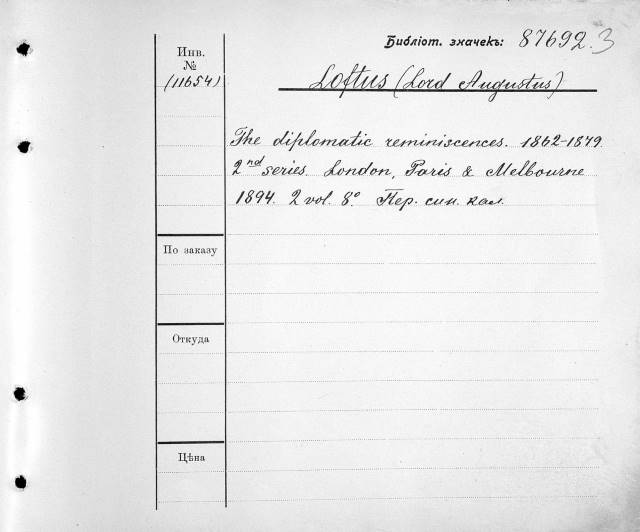 Библіот. значекъ: 87692.3
Инв.
№
(11654)
Loftus (Lord Augustus)
The diplomatic reminiscences. 1862-1879.
2nd series. London, Paris & Melbourne
1894. 2 vol. 8° Пер. син. кал.
По заказу
Откуда
Цѣна